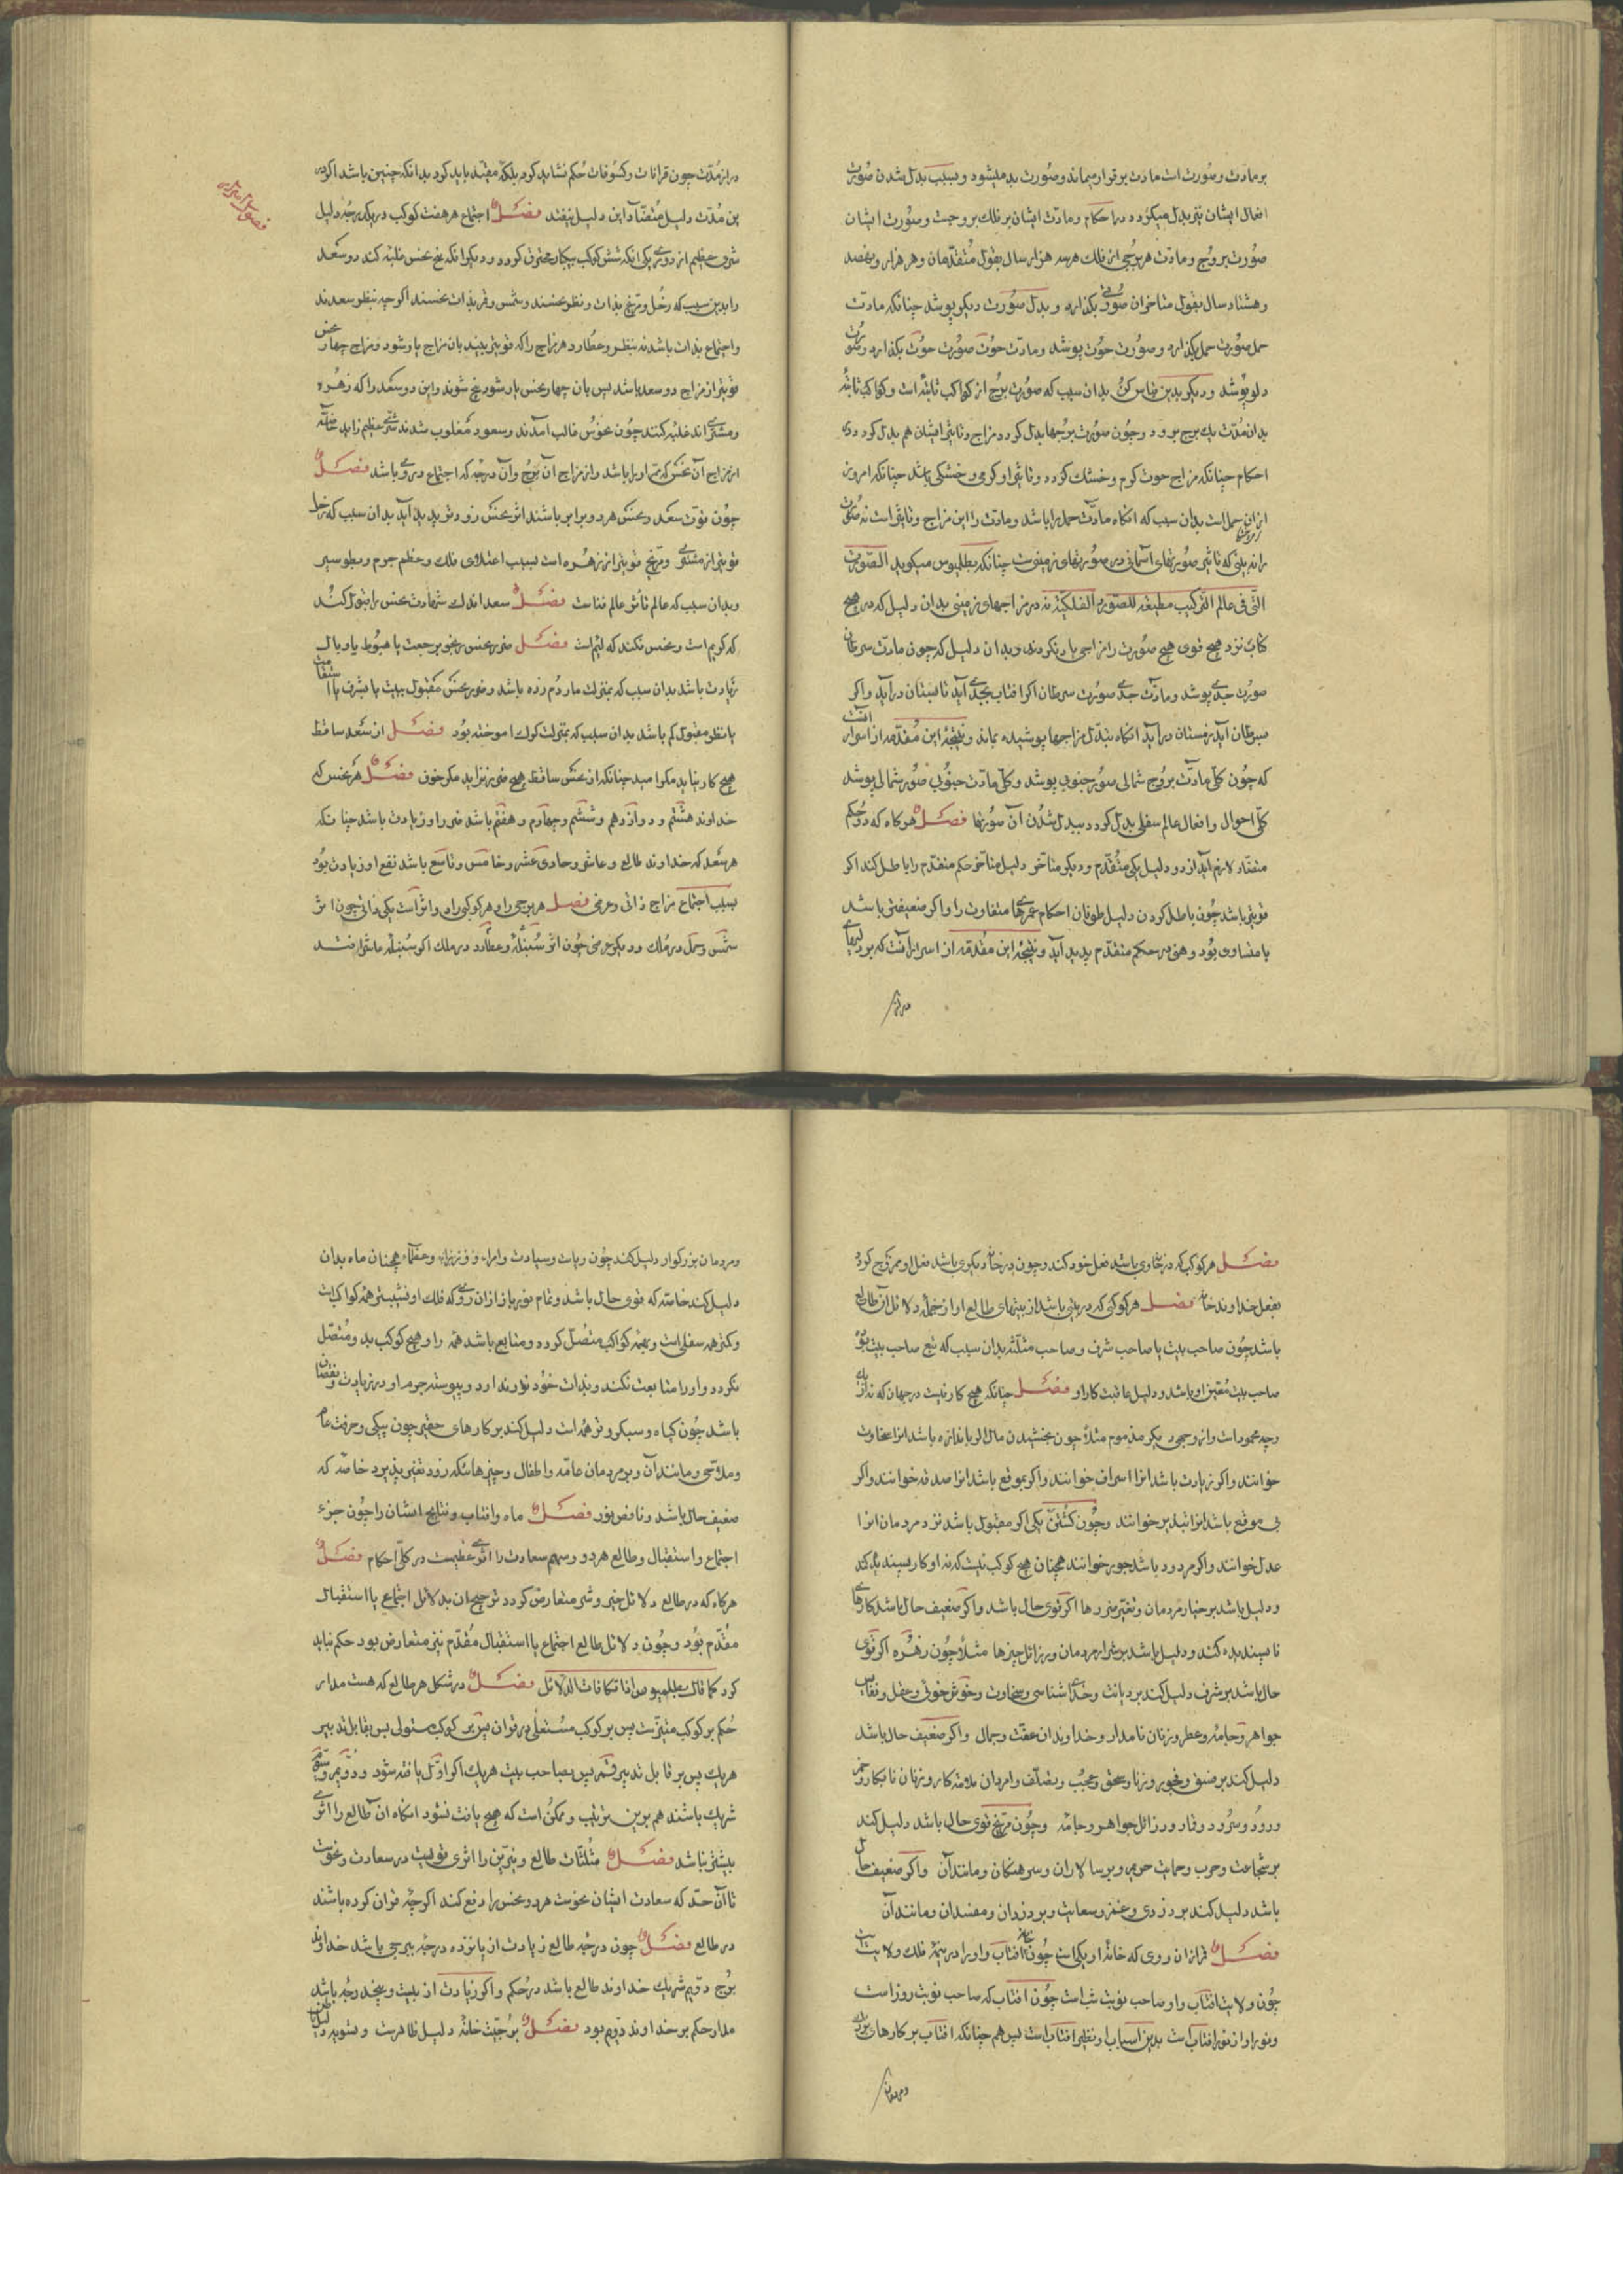 بر مادت و صورت است مادت بر قرار میماند و صورت بدل میشود و بسبب بدل شدن صورت
افعال ایشان نیز بدل میکردد در احکام و مادت ایشان بر فلک بروجست و صورت ایشان
صورت بروج و مادت هر برجی از فلک هر سه هزار سال بقول متقدمان و هر هزار و پنصد
و هشتاد سال بقول متاخران صورتی بکذارد و بدل صورت دیکر پوشد چنانکه مادت
حمل صورت حمل بکذارد و صورت حوت پوشد و مادت حوت صورت حوت بکذارد و صورت
دلو پوشد و دیکر بدین قیاس کن بدان سبب که صورت بروج از کواکب ثابته است و کواکب ثابته
بدان مدت یک برج برود و چون صورت برجها بدل کردد مزاج و تاثیر ایشان هم بدل کردد در
احکام چنانکه مزاج حوت کرم و خشک کردد و تاثیر او کرمی و خشکی باشد چنانکه امروز
از ان حمل است بدان سبب که انکاه مادت حمل را باشد و مادت را این مزاج و تاثیر است نه صورت
را نه بینی که تاثیر صورتهای آسمانی در صورتهای زمینی است چنانکه بطلمیوس میکوید الصورت
التی فی عالم الترکیب مطیعة للصور الفلکیة نه در مزاجهای زمینی بدان دلیل که در هیچ
کتاب نزد هیچ قومی هیچ صورت را مزاجی یاد نکردند و بدان دلیل که چون مادت سرطان
صورت جدی پوشد و مادت جدی صورت سرطان اکر افتاب بجدی آید تابستان درآید و اکر
بسرطان آید زمستان درآید انکاه تبدل مزاجها پوشیده نماند و نتیجه این مقدمه از اسرار آنست
که چون کلی مادت بروج شمالی صور جنوبی پوشد و کلی مادت جنوبی صور شمالی پوشد
کلی احوال و افعال عالم سفلی بدل کردد ببدل شدن آن صورتها فصل هرکاه که دو حکم
متضاد لازم آید از دو دلیل یکی متقدم و دیکر متاخر دلیل متاخر حکم متقدم را باطل کند اکر
قویتر باشد چون باطل کردن دلیل طوفان احکام عمرهای متفاوت را و اکر ضعیفتر باشد
یا متساوی بود وهنی در حکم متقدم پدید آید و نتیجه این مقدمه از اسرار آنست که بر دلیلهای
دراز
دراز مدت چون قرانات و کسوفات حکم نشاید کرد بلکه مقید باید کرد بدانکه چنین باشد اکر در
این مدت دلیل متضاد این دلیل نیفتد فصل اجتماع هر هفت کوکب در یکدرجه دلیل
شری عظیم از دو روی یکی انکه شش کوکب بیکبار محترق کردد و دیکر انکه پنج نحس غلبه کند دو سعد
را بدین سبب که زحل و مریخ بذات و نظر نحسند و شمس و قمر بذات نحسند اکرچه بنظر سعدند
و اجتماع بذات باشد نه بنظر و عطارد هر مزاج را که قویتر بیند بان مزاج یار شود و مزاج چهار نحس
قویتر از مزاج دو سعد باشد پس بان چهار نحس یار شود پنج شوند و این دو سعد را که زهره
و مشتری اند غلبه کنند چون نحوس غالب آمدند و سعود مغلوب شدند شری عظیم زاید خاصه
از مزاج آن نحس که بر اوج باشد و از مزاج آن برج و آن درجه که اجتماع در وی باشد فصل
چون قوت سعد و نحس هر دو برابر باشند اثر نحس زودتر پدید آید بدان سبب که زحل
قویتر از مشتری و مریخ قویتر از زهره است بسبب اعتلای فلک و عظم جرم و بطو سیر
و بدان سبب که عالم تاثر عالم فناست فصل سعد اندک شهادت نحس را قبول کند
که کریم است و نحس نکند که لئیم است فصل ضرر نحس بر نحو رجعت یا هبوط یا وبال
زیادت باشد بدان سبب که بمنزلت مار دم زده باشد و ضرر نحس مقبول ببیت یا بشرف یا استقامت
یا نظر مقبول کم باشد بدان سبب که بمنزلت کرک اموخته بود فصل از سعد ساقط
هیچ کار نیاید مکر امید چنانکه از نحس ساقط هیچ ضرر نزاید مکر خوف فصل هر نحس که
خداوند هشتم و دوازدهم و ششم و چهارم و هفتم باشد ضرر او زیادت باشد چنانکه
هر سعد که خداوند طالع و عاشر و حادی عشر و خامس و تاسع باشد نفع او زیادت بود
بسبب اجتماع مزاج ذاتی و عرضی فصل هر برجی را و هر کوکبی را دو اثر است یکی ذاتی چون اثر
شمس و حمل در ملک و دیکر عرضی چون اثر سنبله و عطارد در ملک اکر سنبله عاشر افتد
فصل هر کوکب که در خانه وی باشد فعل خود کند و چون در خانه دیکری باشد فعل او ممزوج کردد
بفعل خداوند خانه فصل هر کوکبی که در بیتی باشد از بیتهای طالع او از جمله دلائل آن طالع
باشد چون صاحب بیت یا صاحب شرف و صاحب مثلثه بدان سبب که تبع صاحب بیت بود
صاحب بیت مقبل او باشد و دلیل عاقبت کار او فصل چنانکه هیچ کار نیست در جهان که نه از
وجه محمودست و از وجهی دیکر مذموم مثلا چون بخشیدن مال اکر باندازه باشد انرا سخاوت
خوانند و اکر زیادت باشد انرا اسراف خوانند و اکر بموقع باشد انرا صدقه خوانند و اکر
بی موقع باشد انرا تبذیر خوانند و چون کشتن یکی اکر مقبول باشد نزد مردمان انرا
عدل خوانند و اکر مردود باشد جور خوانند همچنان هیچ کوکب نیست که نه او کار پسندیده کند
و دلیل باشد بر خیار مردمان و نفیس چیزها اکر قوی حال باشد و اکر ضعیف حال باشد کارها
ناپسندیده کند و دلیل باشد بر شرار مردمان و رزائل چیزها مثلا چون زهره اکر قوی
حال باشد بر شرف دلیل کند بر دیانت و خدای شناسی و سخاوت و خوش خوئی و عقل و نفایس
جواهر و جامه و عطر و زنان نامدار و خداوندان عفت و جمال و اکر ضعیف حال باشد
دلیل کند بر فسق و فجور و زنا و سحق و عجب و تصلف و امردان ملامته کار و زنان نابکار و خمر
و رود و سرود و قمار و رزائل جواهر و جامه و چون مریخ قوی حال باشد دلیل کند
بر شجاعت و حرب و حمایت حریم و بر سالاران و سرهنکان و مانند آن و اکر ضعیف حال
باشد دلیل کند بر دزدی و غمز و سعایت و بر دزدان و مفسدان و مانند آن
فصل قمر از ان روی که خانه او یکی است چون خانه افتاب و او را در نیمه فلک ولایت است
چون ولایت افتاب و او صاحب نوبت شب است چون افتاب که صاحب نوبت روز است
و نور او از نور افتاب است بدین اسباب او نظیر افتاب است پس هم چنانکه افتاب بر کارهای بزرک
و مردمان
و مردمان بزرکوار دلیل کند چون ریاست و سیادت و امراء و وزراء و عظماء همچنان ماه بدان
دلیل کند خاصه که قوی حال باشد و تمام نور باز از ان روی که فلک او نشیبتر همه کواکب است
و کمتر همه سفلی است و بهمه کواکب متصل کردد و متابع باشد همه را و هیچ کوکب بدو متصل
نکردد و او را متابعت نکند و بذات خود نور ندارد و پیوسته جرم او در زیادت و نقصان
باشد چون کیاه و سبکروتر همه است دلیل کند بر کارهای حقیر چون پیکی و حرفت عام
و ملاحی و مانند آن و بر مردمان عامه و اطفال و چیزهائیکه زود تغیر پذیرد خاصه که
ضعیف حال باشد و ناقص نور فصل ماه و افتاب و نتایج ایشان را چون جزء
اجتماع و استقبال و طالع هر دو و سهم سعادت را اثری عظیمست در کلی احکام فصل
هرکاه که در طالع دلائل خیر و شر متعارض کردد ترجیح ان بدلائل اجتماع یا استقبال
مقدم بود و چون دلائل طالع اجتماع یا استقبال مقدم نیز متعارض بود حکم نباید
کرد کما قال بطلمیوس اذا تکافات الدلائل فصل در شکل هر طالع که هست مدار
حکم بر کوکب مبتزست پس بر کوکب مستعلی در قران پس بر کوکب مستولی پس بقابل تدبیر
هر یک پس بر قابل تدبیر قمر پس بصاحب بیت هر یک اکر اول یافته شود و دویم و سیم
شریک باشند هم برین ترتیب و ممکن است که هیچ یافت نشود انکاه ان طالع را اثری
بیشتر نباشد فصل مثلثات طالع و نیرین را اثری قویست در سعادت و نحوست
تا آن حد که سعادت ایشان نحوست هر دو نحس را دفع کند اکرچه قران کرده باشند
در طالع فصل چون درجه طالع زیادت از پانزده درجه برجی باشد خداوند
برج دویم شریک خداوند طالع باشد در حکم و اکر زیادت از بیست و پنجدرجه باشد
مدار حکم بر خداوند دویم بود فصل برجیت خانه دلیل ظاهرست و تسویه دلیل باطن